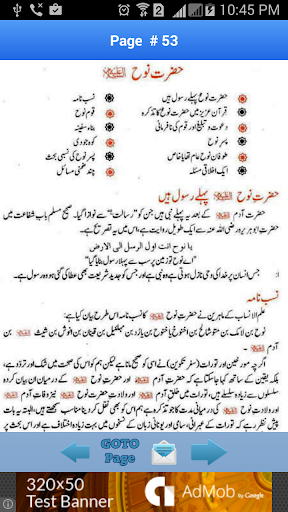 10:45 PM
Page # 53
حضرت نوح
حضرت نوحؑ پہلے رسول ہیں
نسب نامہ
قرآن عزیز میں حضرت نوحؑ کا تذکرہ
قوم نوح
دعوت و تبلیغ اور قوم کی نافرمانی
بناء سفینہ
پسر نوح
کوہ جودی
طوفان نوح عام تھا یا خاص
پسر نوح کی نسبی بحث
ایک اخلاقی مسئلہ
چند ضمنی مسائل
حضرت نوح پہلے رسول ہیں
حضرت آدم کے بعد یہ پہلے نبی ہیں جن کو "رسالت" سے نوازا گیا۔ صحیح مسلم باب شفاعت میں
حضرت ابو ہریرہ رضی اللہ عنہ سے ایک طویل روایت ہے، اس میں یہ تصریح ہے۔
یا نوح انت اول الرسل الی الارض
"اے نوح تو زمین پر سب سے پہلا رسول بنایا گیا"
جس انسان پر خدا کی وحی نازل ہوتی ہے وہ نبی ہے اور جس کو جدید شریعت بھی عطا کی گئی ہو وہ رسول ہے۔
نسب نامہ
علم الانساب کے ماہرین نے حضرت نوح کا نسب نامہ اس طرح بیان کیا ہے
نوح بن لامک بن متوشالح بن اخنوخ یا خنوخ بن یارد بن مہلئیل بن قینان بن انوش بن شیث بن
آدم
اگرچہ مورخین اور تورات (سفر تکوین) نے اسی کو صحیح مانا ہے لیکن ہم کو اس کی صحت میں شک اور تردد ہے،
بلکہ یقین کے ساتھ کہا جا سکتا ہے کہ حضرت آدم اور حضرت نوح کے درمیان ان بیان کردہ
سلسلوں سے زیادہ سلسلے ہیں،
GOTO
Page
320×50
Test Banner
AdMob by Google